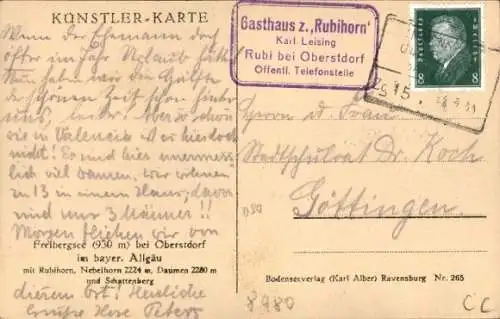 KÜNSTLER-KARTE
Wenn der Ehemann doch
öfter im Jahr Urlaub hätte!
Nun haben wir die Hälfte
der schönen Zeit schon hinter
uns, leider. Aber so schön
wie in Valencia ist es hier doch
nicht! Es sind hier unermess-
lich viel Damen. Wir wohnen
zu 13 in einem Haus, davon
sind nur 3 Männer!!
Morgen fliehen wir von
Freibergsee (930 m) bei Oberstdorf
im bayer. Allgäu
mit Rubihorn, Nebelhorn 2224 m, Daumen 2280 m
und Schattenberg
diesem Ort! Herzliche
Grüße Ihre Peters
Gasthaus z. „Rubihorn"
Karl Leising
Rubi bei Oberstdorf
Öffentl. Telefonstelle
Deutsches Reich
8 8
Herrn u. Frau
Stadtschulrat Dr. Koch
Göttingen
Bodenseeverlag (Karl Alber) Ravensburg Nr. 265
8980
CC